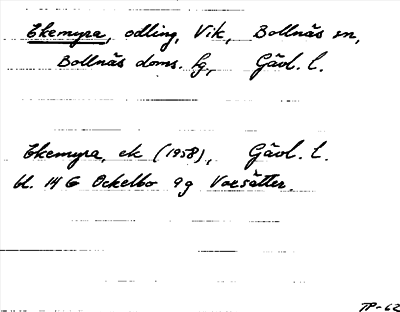 Ekemyra, odling, Vik, Bollnäs sn,
Bollnäs doms. fg, Gävl. l.
Ekemyra, ek (1958), Gävl. l.
bl. 14 G Ockelbo 9g Voxsätter.
TP-62